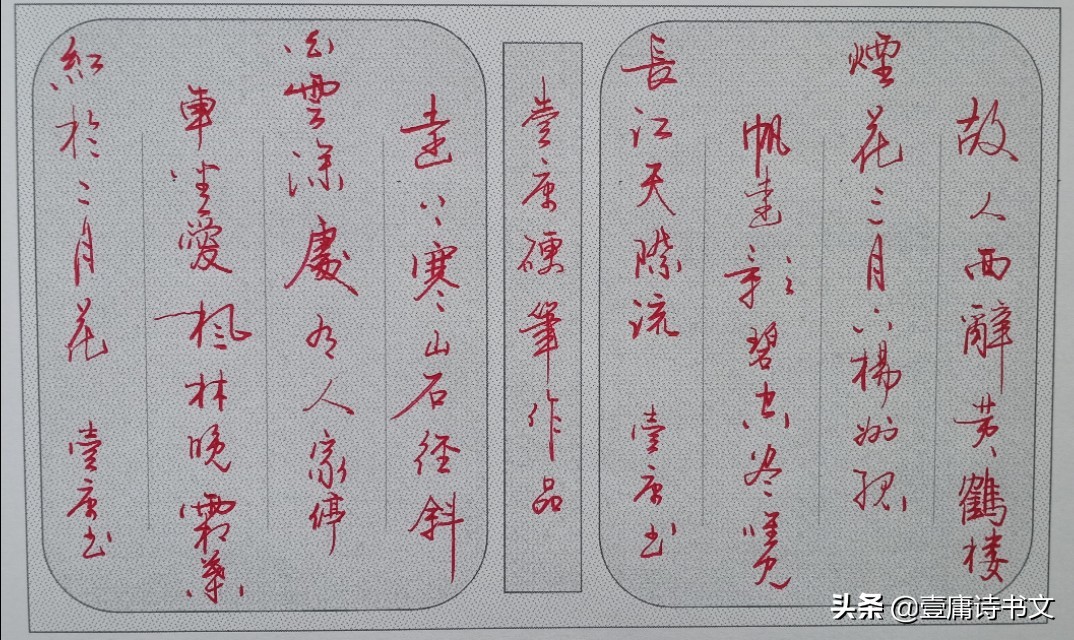 故人西辭黄鶴楼
煙花三月下楊州孤
帆遠影碧空盡唯見
長江天際流 壹庸书
壹庸硬筆作品
遠上寒山石径斜
白雲深處有人家停
車坐愛楓林晚霜葉
紅於二月花 壹庸书
头条 @壹庸诗书文